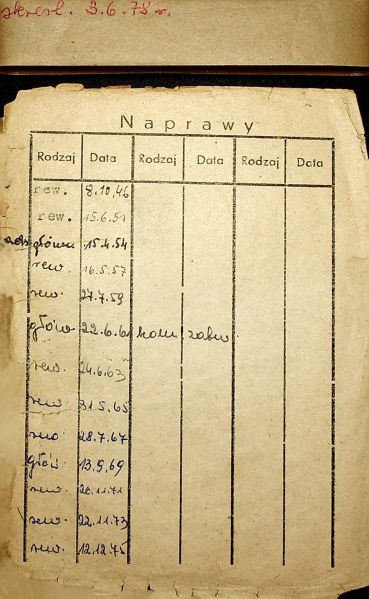 skresl. 3.6.78 r.
Naprawy
Rodzaj Data Rodzaj Data Rodzaj Data
rew. 8.10.46
rew. 15.6.51
główn 15.4.54
rew. 16.5.57
rew. 27.7.59
główn 22.6.61
rew. 24.6.63
rew. 31.5.65
rew 28.7.67
głów 13.9.69
rew. 26.11.71
rew. 22.11.73
rew. 12.12.75